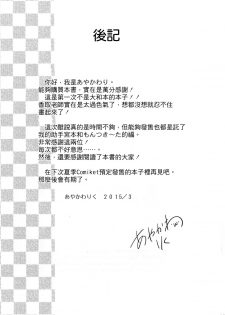 後記
你好,我是あやかわり。
能夠購買本書,實在是萬分感謝!
這是第一次不是大和本的本子!!
香取老師實在是太過色氣了,想都沒想就忍不住
畫起來了!
這次雖說真的是時間不夠,但能夠發售也都是託了
我的助手宮本和もんつきーた的福,
非常感謝這兩位!
每次都不好意思……。
然後,還要感謝閱讀了本書的大家!
在下次夏季Comiket預定發售的本子裡再見吧。
那麼後會有期了。
あやかわりく 2015/3
あやかわ
りく